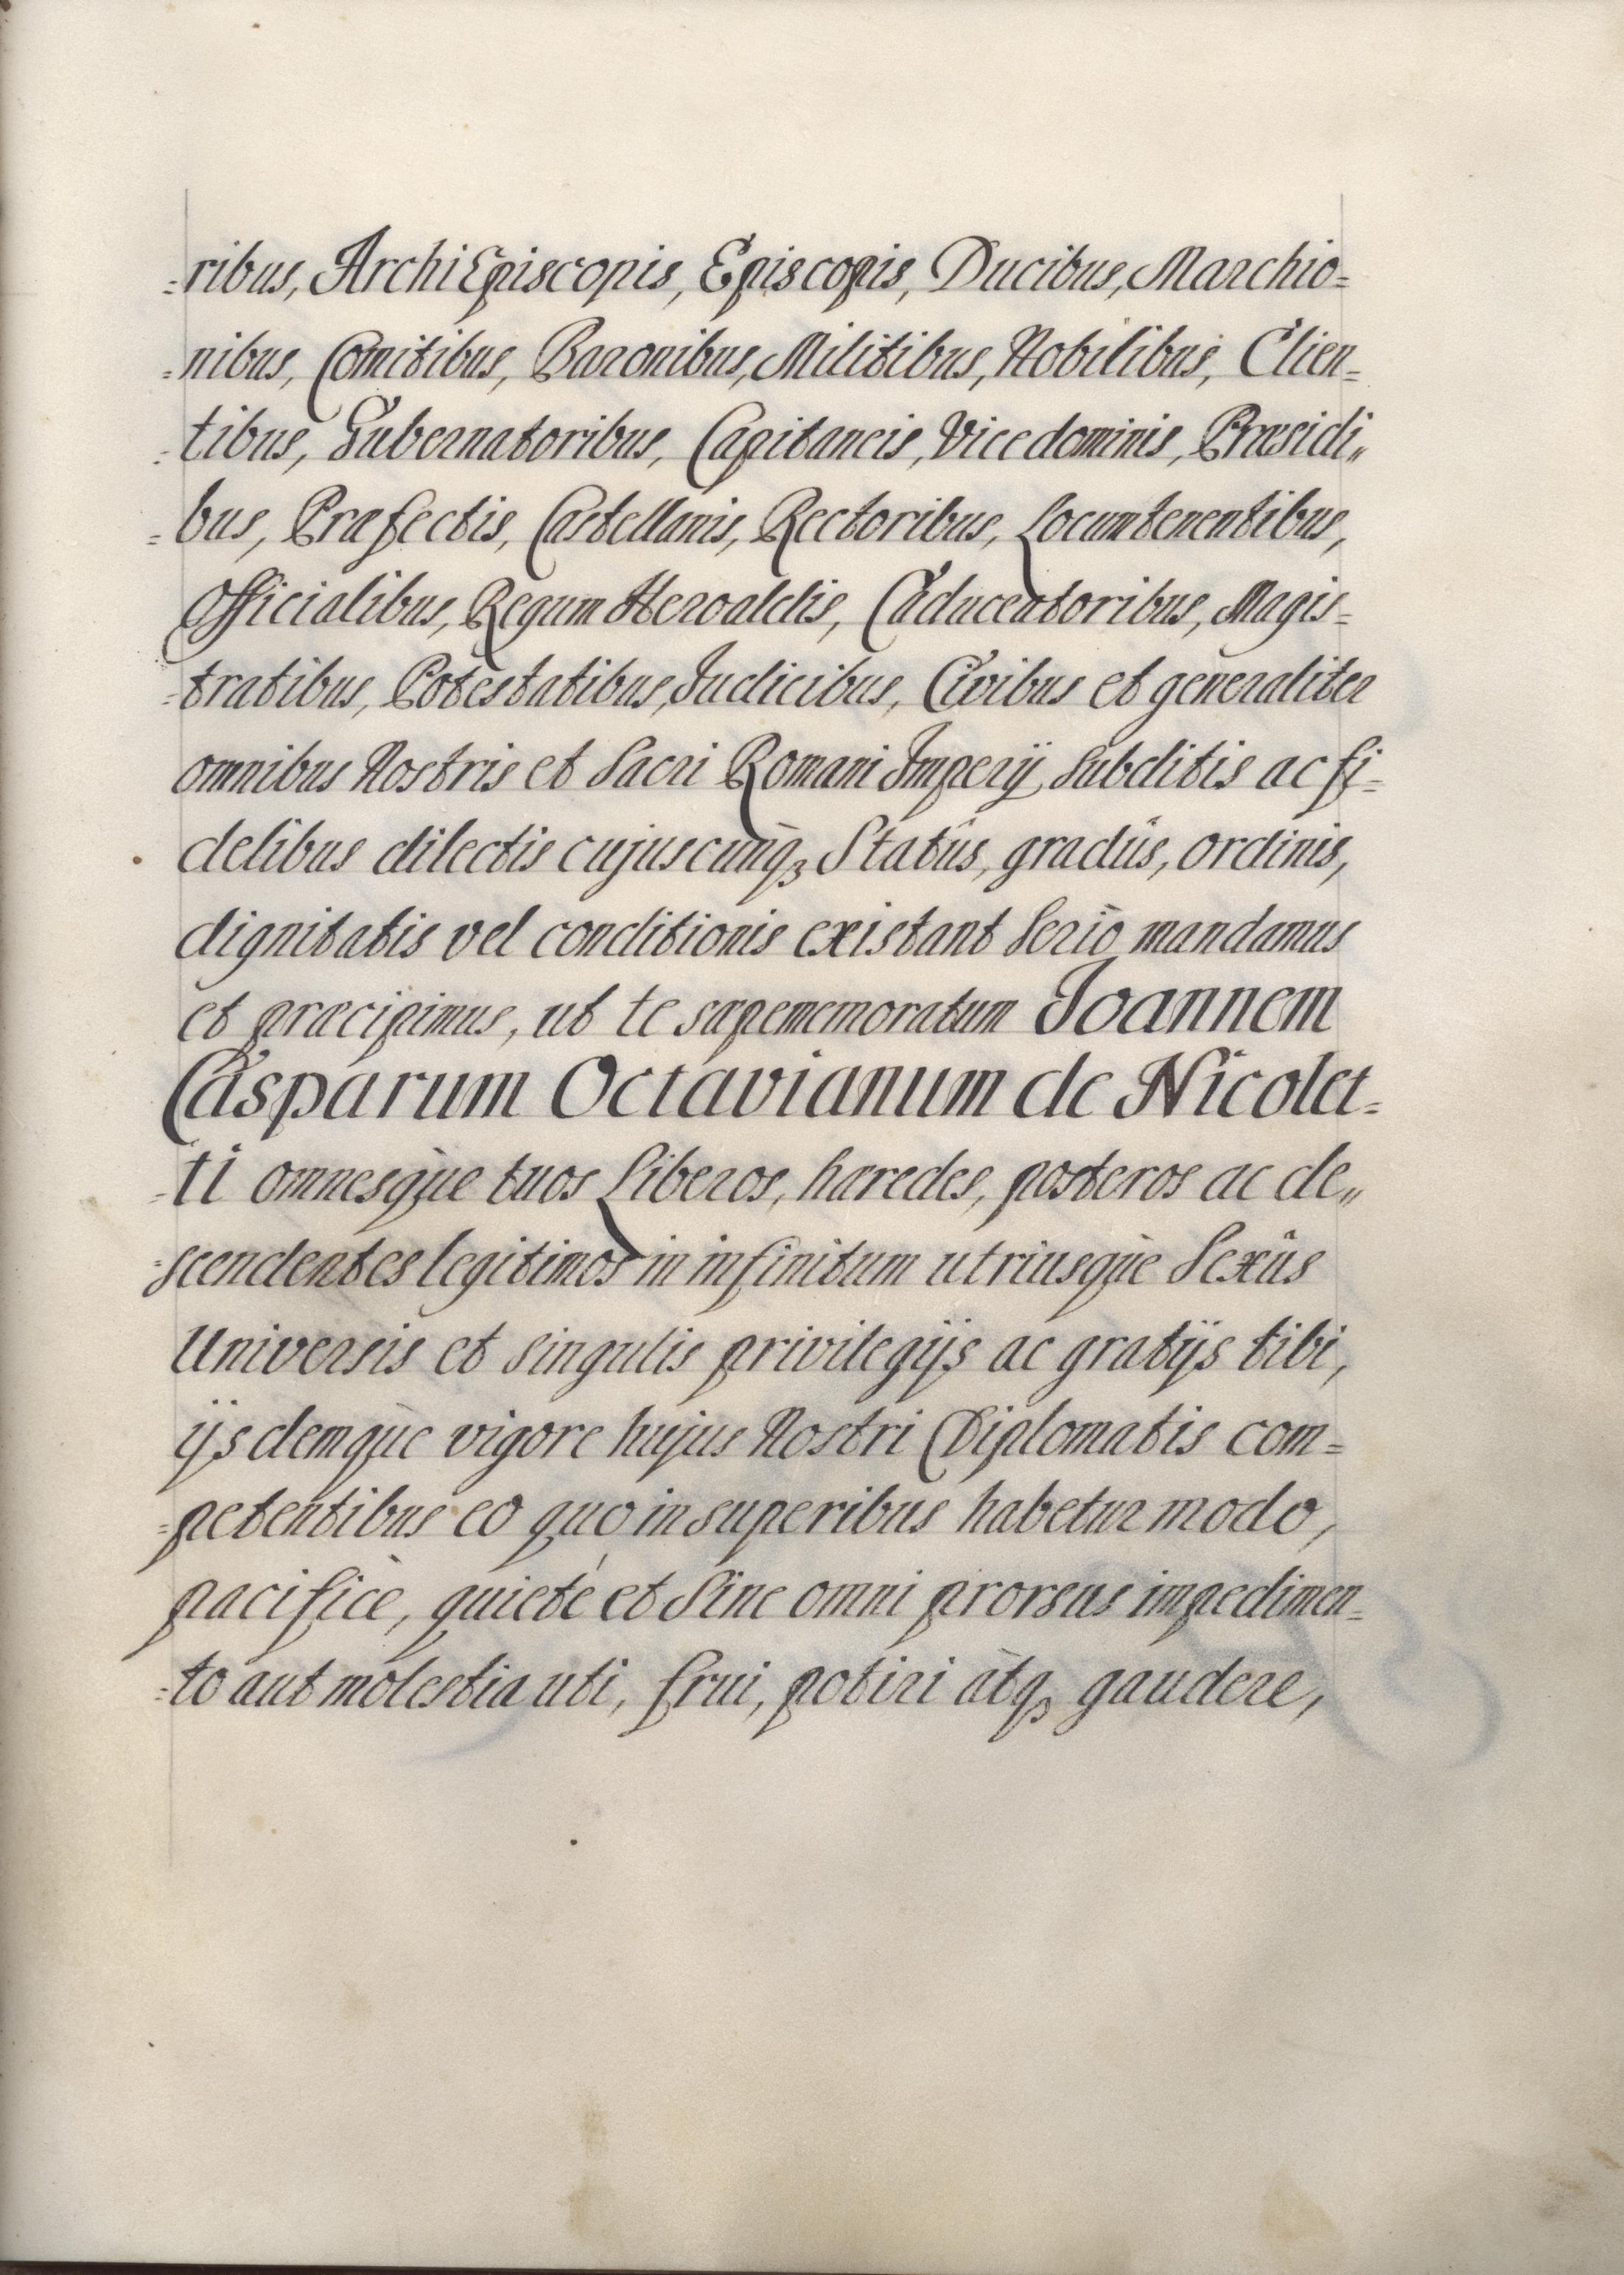 =ribus, ArchiEpiscopis, Episcopis, Ducibus, Marchio=
=nibus, Comitibus, Baronibus, Militibus, Nobilibus, Clien=
=tibus, Gubernatoribus, Capitaneis, Vicedominis, Præsidi„
=bus, Præfectis, Castellanis, Rectoribus, Locumtenentibus,
Officialibus, Regum Heroaldis, Caduceatoribus, Magis=
=tratibus, Potestatibus, Judicibus, Civibus et generaliter
omnibus Nostris et Sacri Romani Imperij Subditis ac fi=
delibus dilectis cujuscunqȝ Statûs, gradûs, ordinis,
dignitatis vel conditionis existant Seriò mandamus
et præcipimus, ut te sæpememoratum Joannem
Casparum Octavianum de Nicolet=
=ti omnesque tuos Liberos, hæredes, posteros ac de„
=scendentes legitimos in infinitum utriusque Sexûs
Universis et singulis privilegijs ac gratijs tibi,
ijsdemque vigore hujus Nostri Diplomatis com=
=petentibus eo quo in superibus habetur modo,
pacificè, quietè et Sine omni prorsus impedimen=
=to aut molestia uti, frui, potiri àtqȝ gaudere,